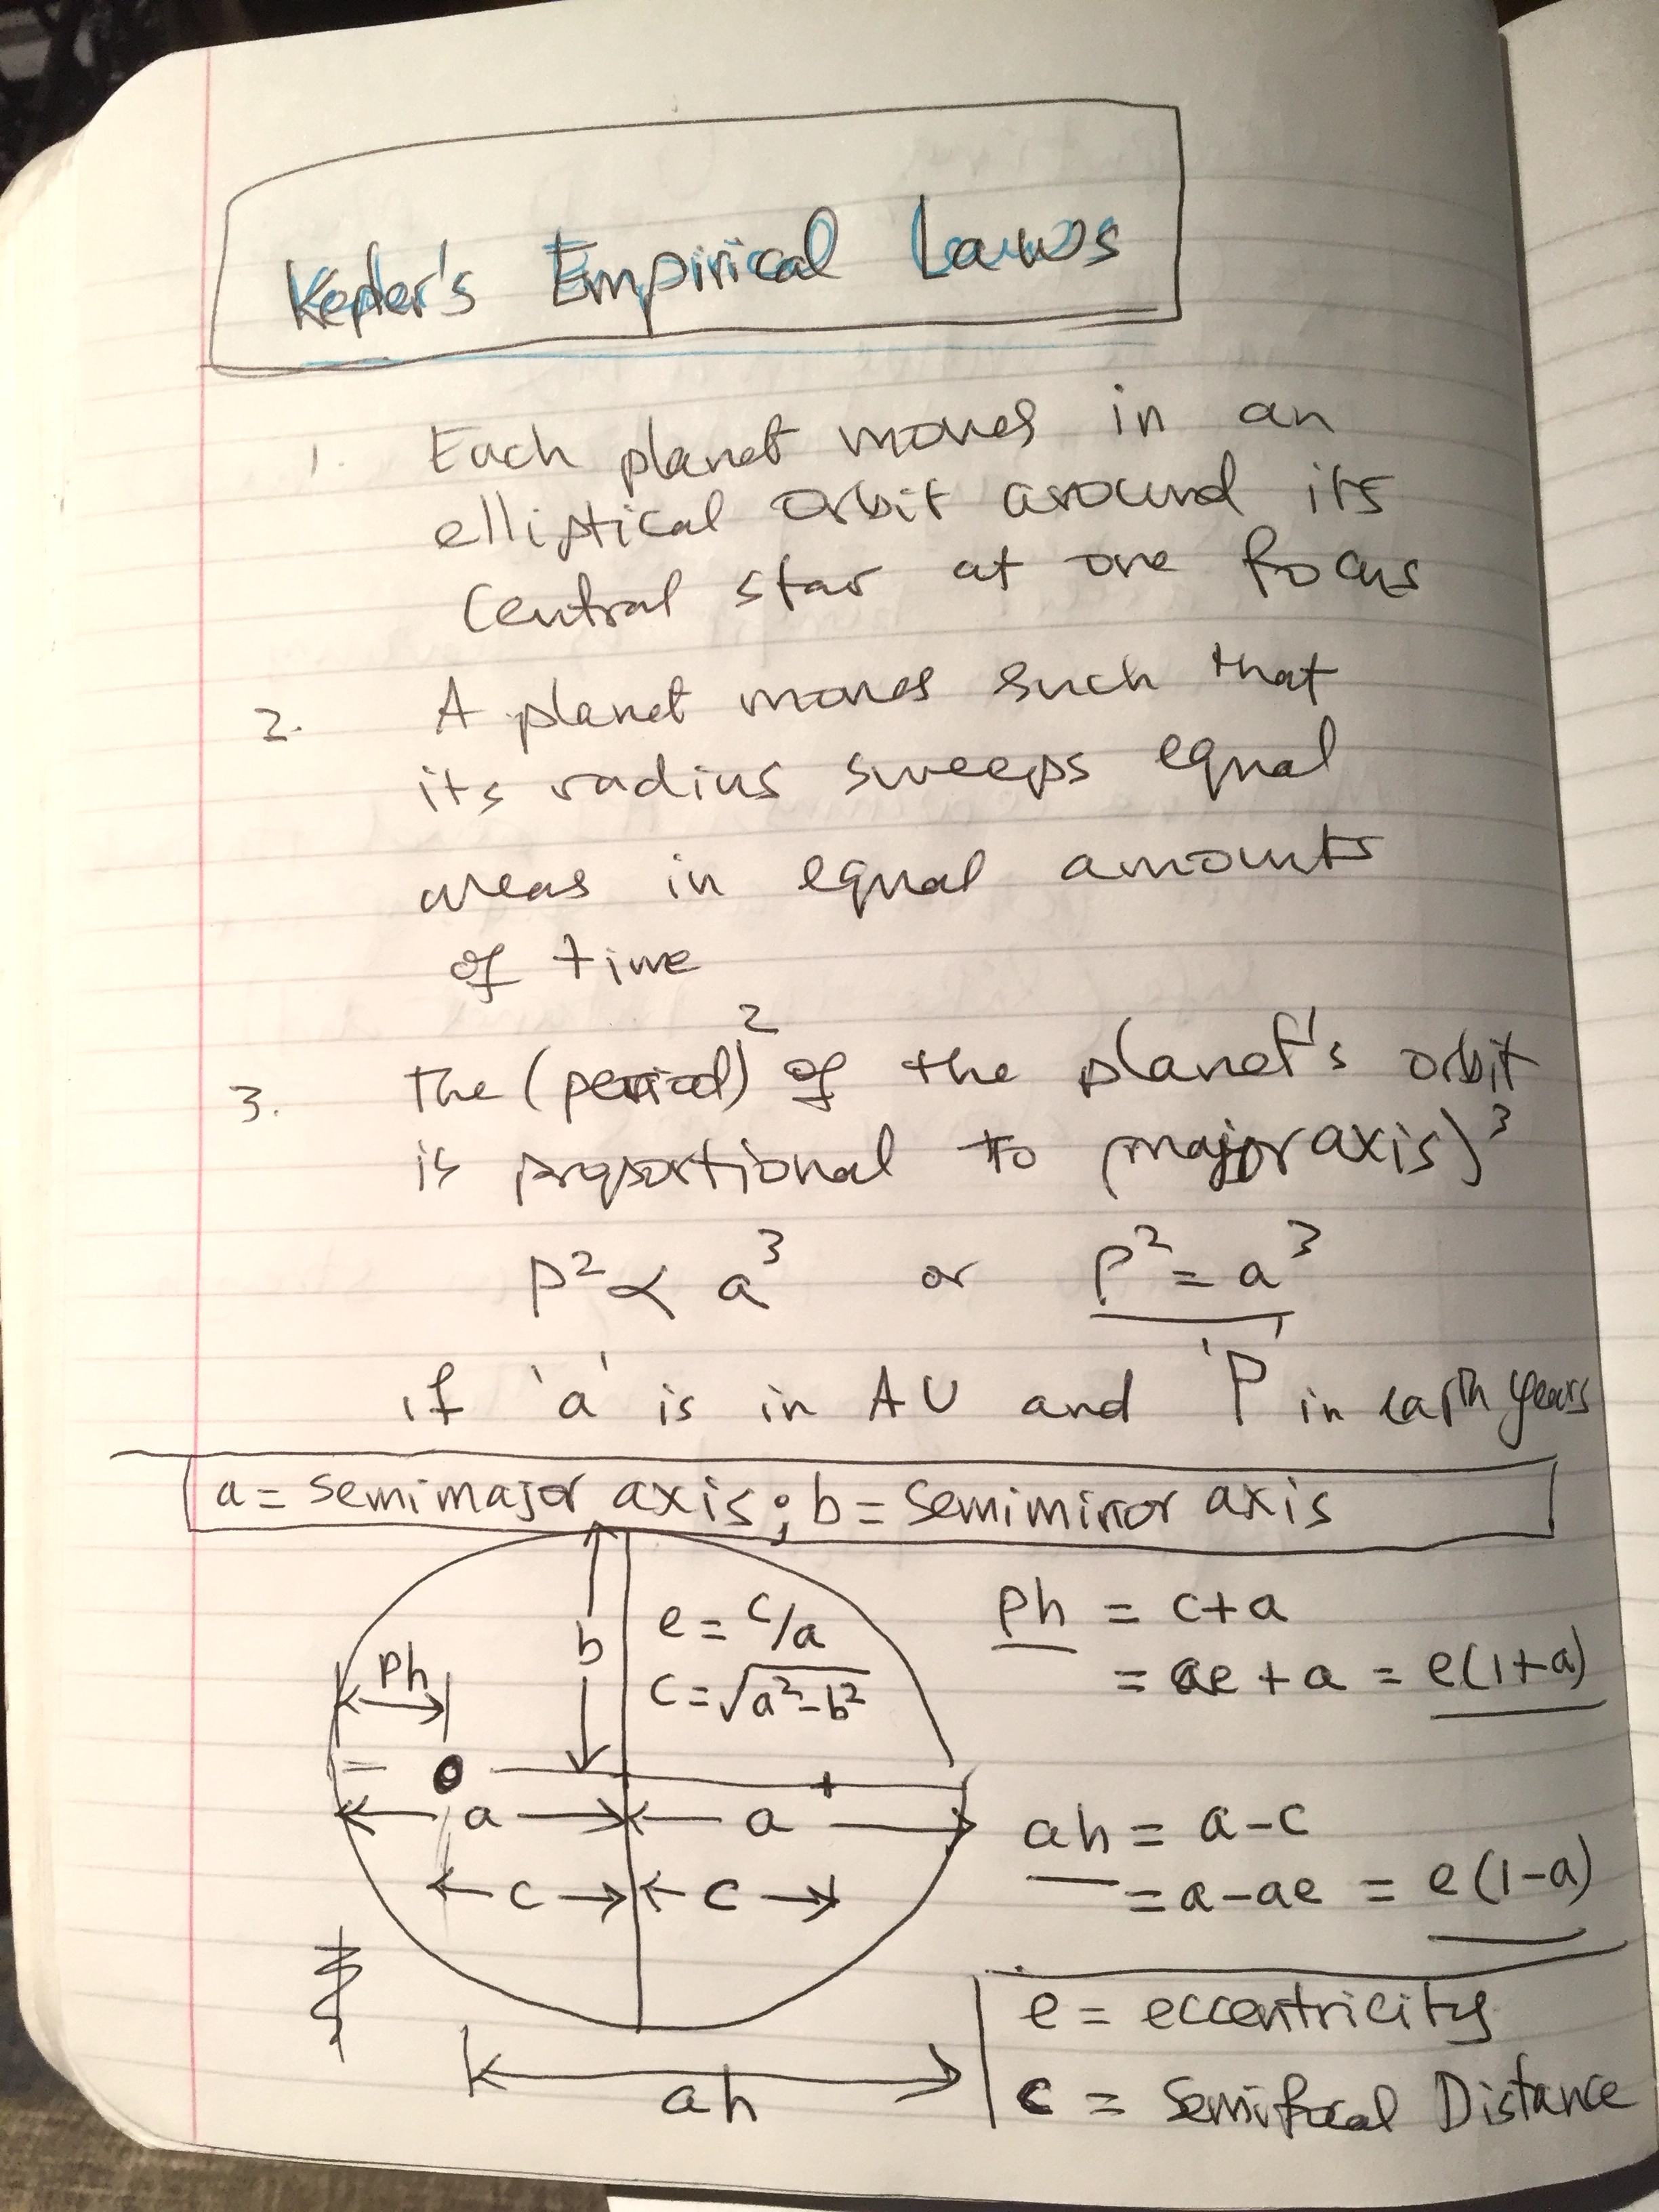 Kepler's Empirical Laws
1. Each planet moves in an
elliptical orbit around its
Central star at one focus
2. A planet moves such that
its radius sweeps equal
areas in equal amounts
of time
3. The (period)² of the planet's orbit
is proportional to (major axis)³
P² ∝ a³ or P² = a³
if 'a' is in AU and 'P' in earth years
a = semimajor axis; b = semiminor axis
Ph
b
e = c/a
c = √a²-b²
a
a
c
c
ah
Ph = c+a
= ae + a = e(1+a)
ah = a-c
= a-ae = e(1-a)
e = eccentricity
c = Semifocal Distance